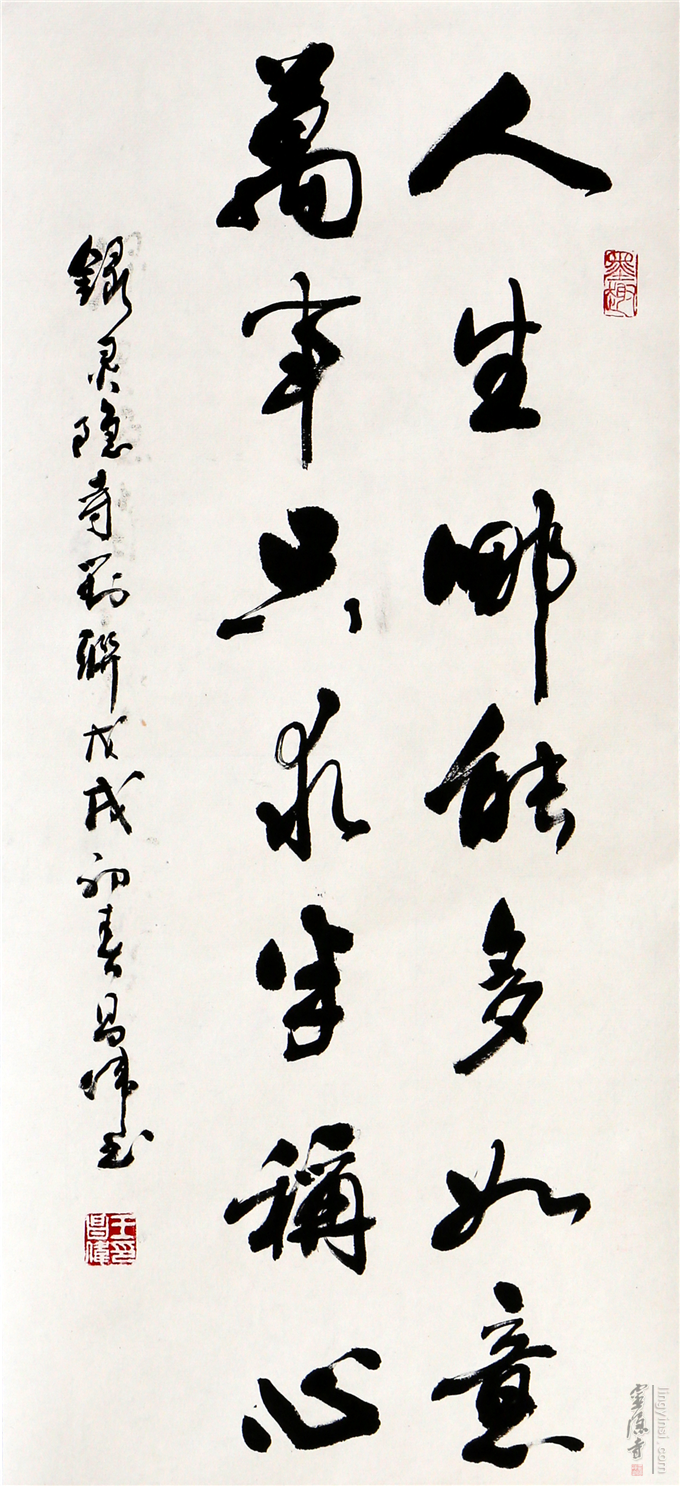 人生哪能多如意
萬事只求半稱心
錄灵隐寺對聯戊戌初春昌偉書
墨趣
王昌偉印
靈隱寺
lingyinsi.com